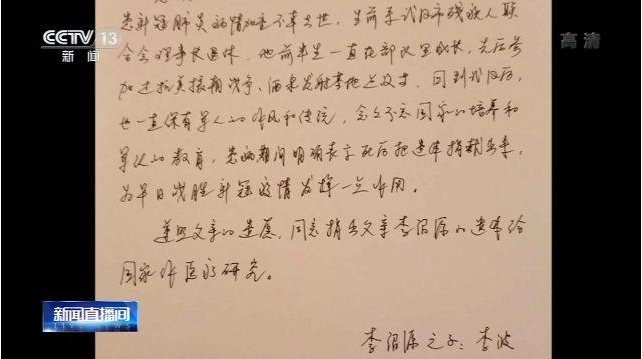 CCTV 13
新闻
高清
患新冠肺炎病情加重不幸去世,生前系武汉市残疾人联
合会理事长退休。他前半生一直在部队里成长,先后参
加过抗美援朝战争、酒泉发射基地建设。回到武汉后,
也一直保有军人的作风和传统,念念不忘国家的培养和
军队的教育,患病期间明确表示死后把遗体捐献出来,
为早日战胜新冠疫情发挥一点作用。
遵照父亲的遗愿,同意捐出父亲李绍源的遗体给
国家作医学研究。
李绍源之子:李波
新闻直播间